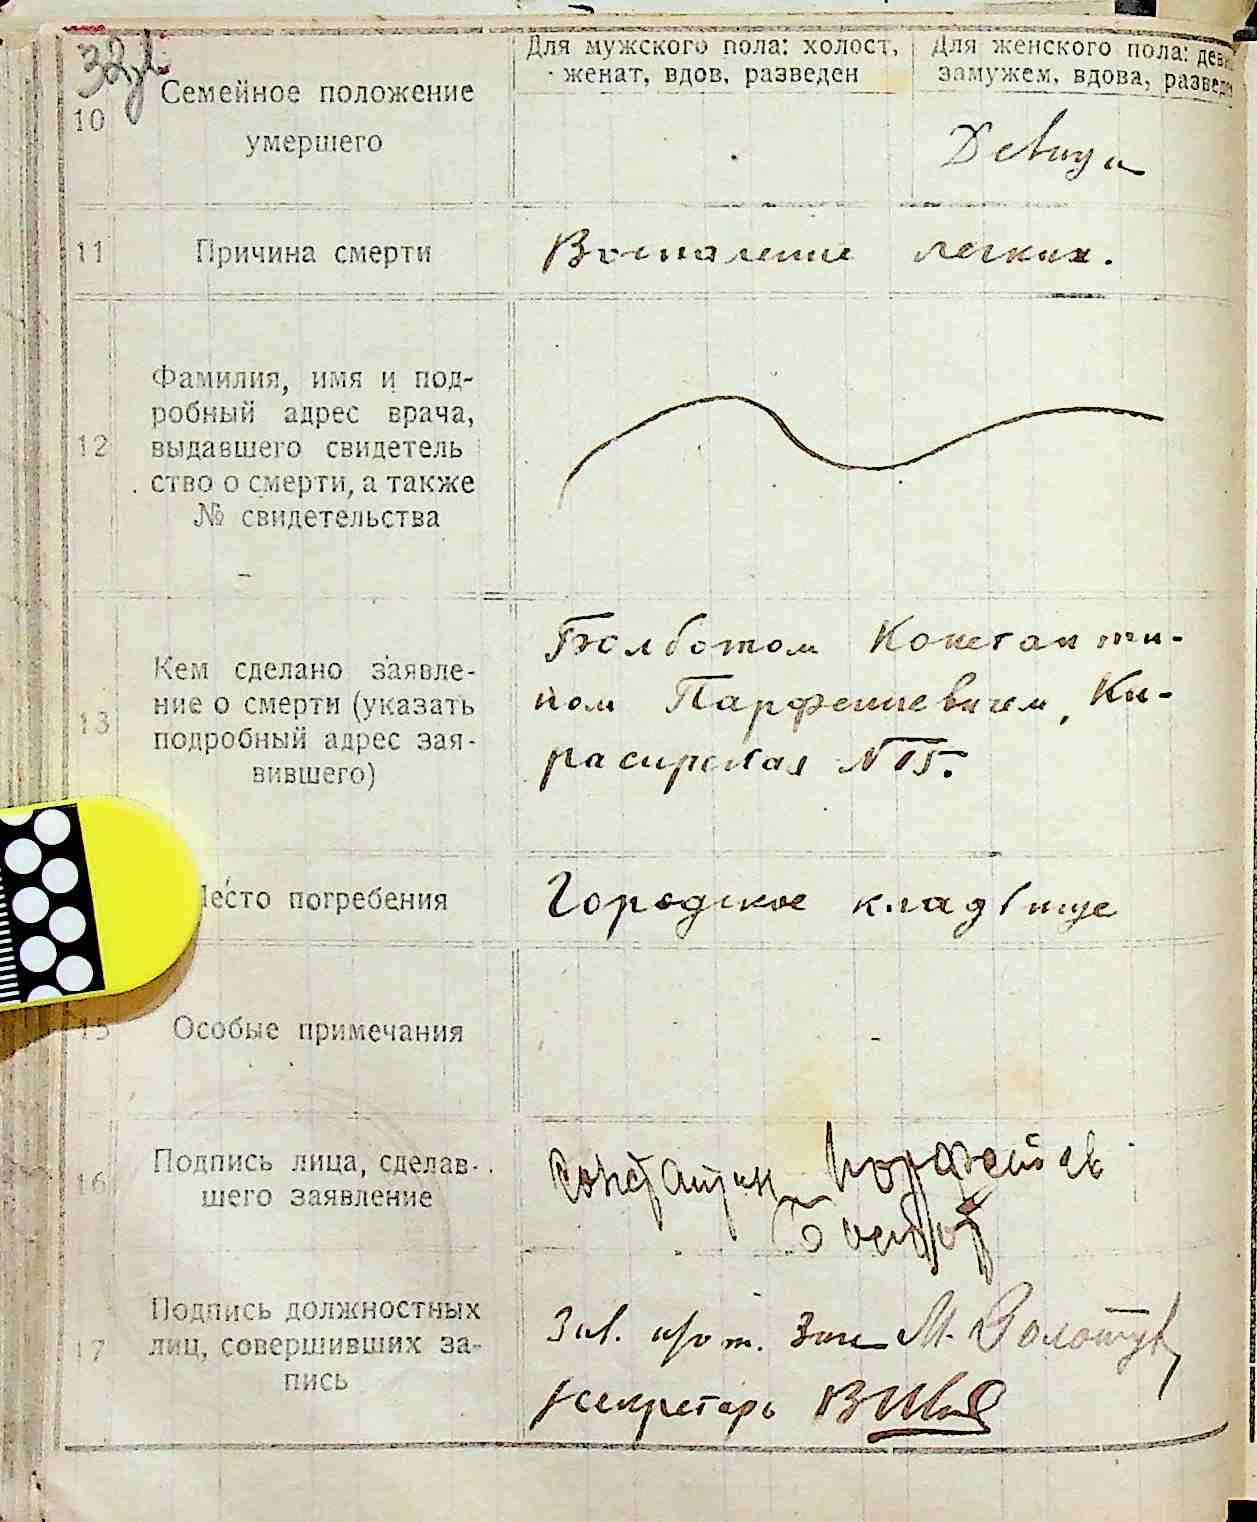 Для мужского пола: холост,
женат, вдов, разведен
Для женского пола: дев
замужем, вдова, разведе
10 Семейное положение
умершего
Девица
11 Причина смерти
Воспаление легких.
12 Фамилия, имя и под-
робный адрес врача,
выдавшего свидетель
ство о смерти, а также
№ свидетельства
13 Кем сделано заявле-
ние о смерти (указать
подробный адрес зая-
вившего)
Болботом Константи-
ном Парфениевичем, Ки-
расирская №
Место погребения
Городское кладбище
15 Особые примечания
16 Подпись лица, сделав-
шего заявление
Константин
17 Подпись должностных
лиц, совершивших за-
пись
Зав. М.
секретарь